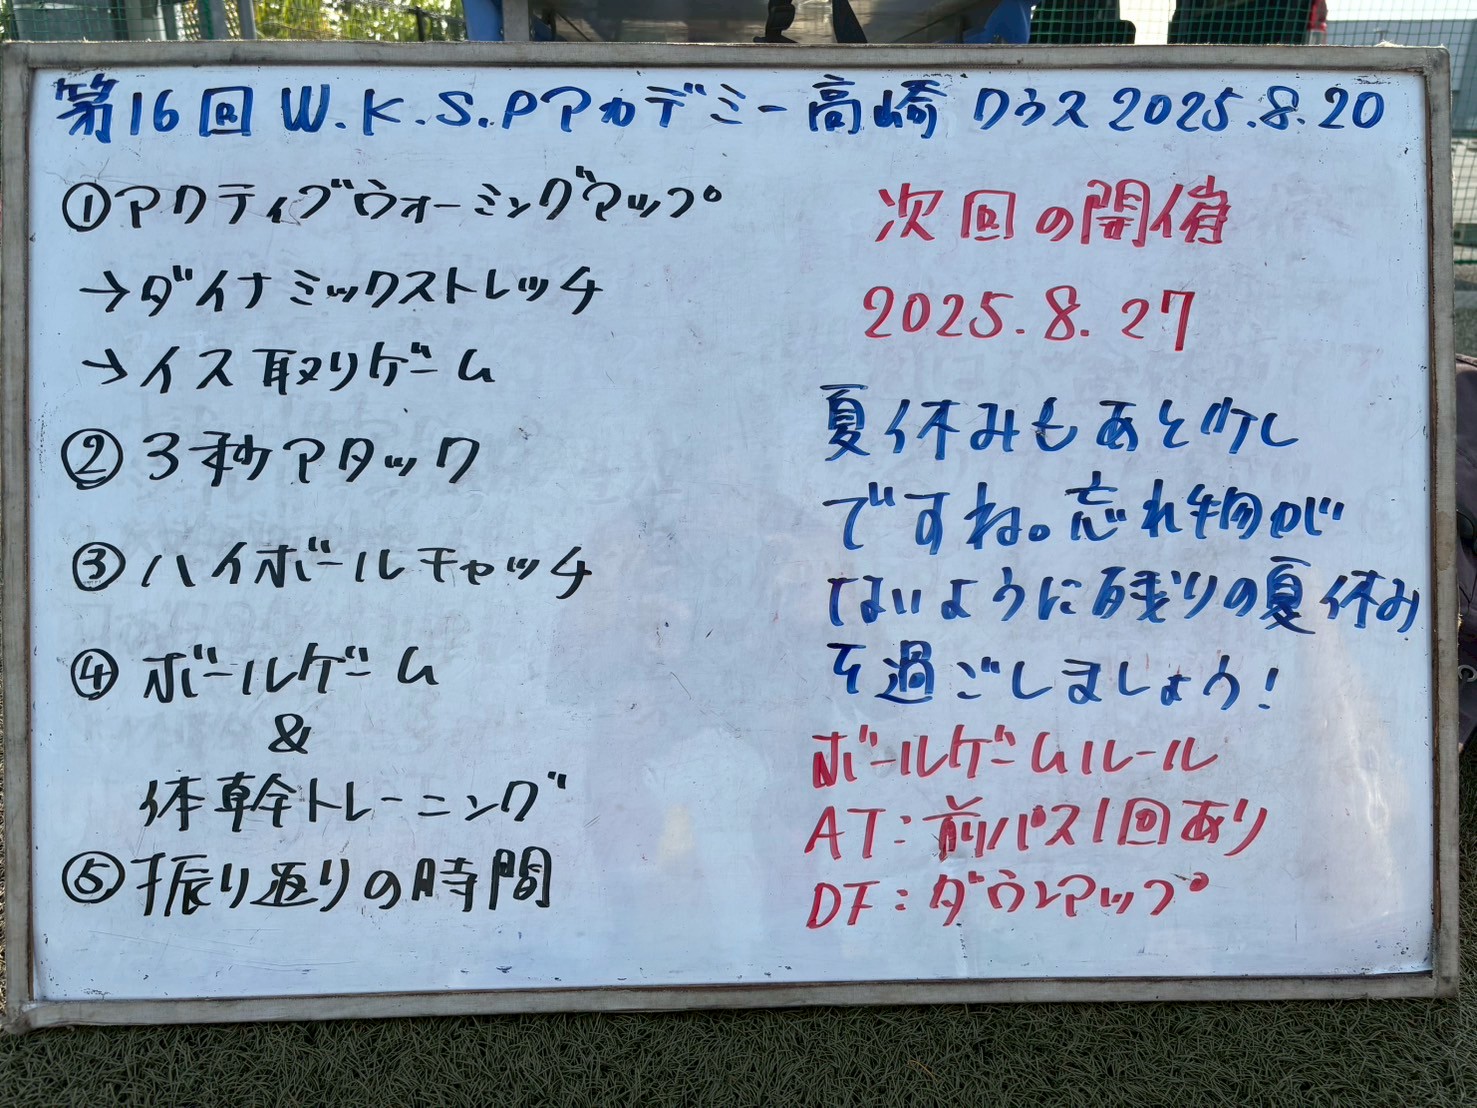 第16回 W.K.S.Pアカデミー高崎 クラス 2025.8.20
①アクティブウォーミングアップ
→ダイナミックストレッチ
→イス取りゲーム
②3秒アタック
③ハイボールキャッチ
④ボールゲーム
&
体幹トレーニング
⑤振り返りの時間
次回の開催
2025.8.27
夏休みもあと少し
ですね。忘れ物が
ないように残りの夏休み
を過ごしましょう!
ボールゲームルール
AT:前パス1回あり
DF:ダウンアップ